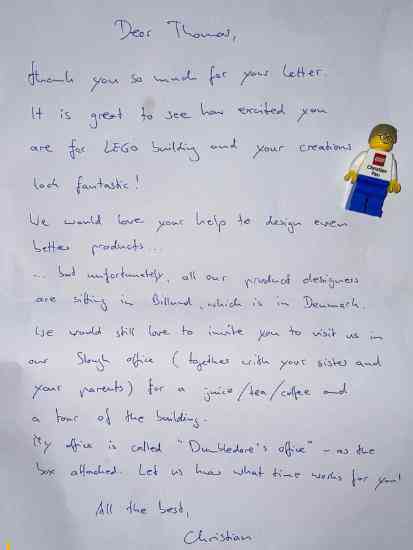 Dear Thomas,
thank you so much for your letter.
It is great to see how excited you
are for LEGO building and your creations
look fantastic!
We would love your help to design even
better products...
... but unfortunately, all our product designers
are sitting in Billund, which is in Denmark.
We would still love to invite you to visit us in
our Slough office (together with your sister and
your parents) for a juice/tea/coffee and
a tour of the building.
My office is called "Dumbledore's office" - as the
box attached. Let us know what time works for you!
All the best,
Christian
LEGO
Christian